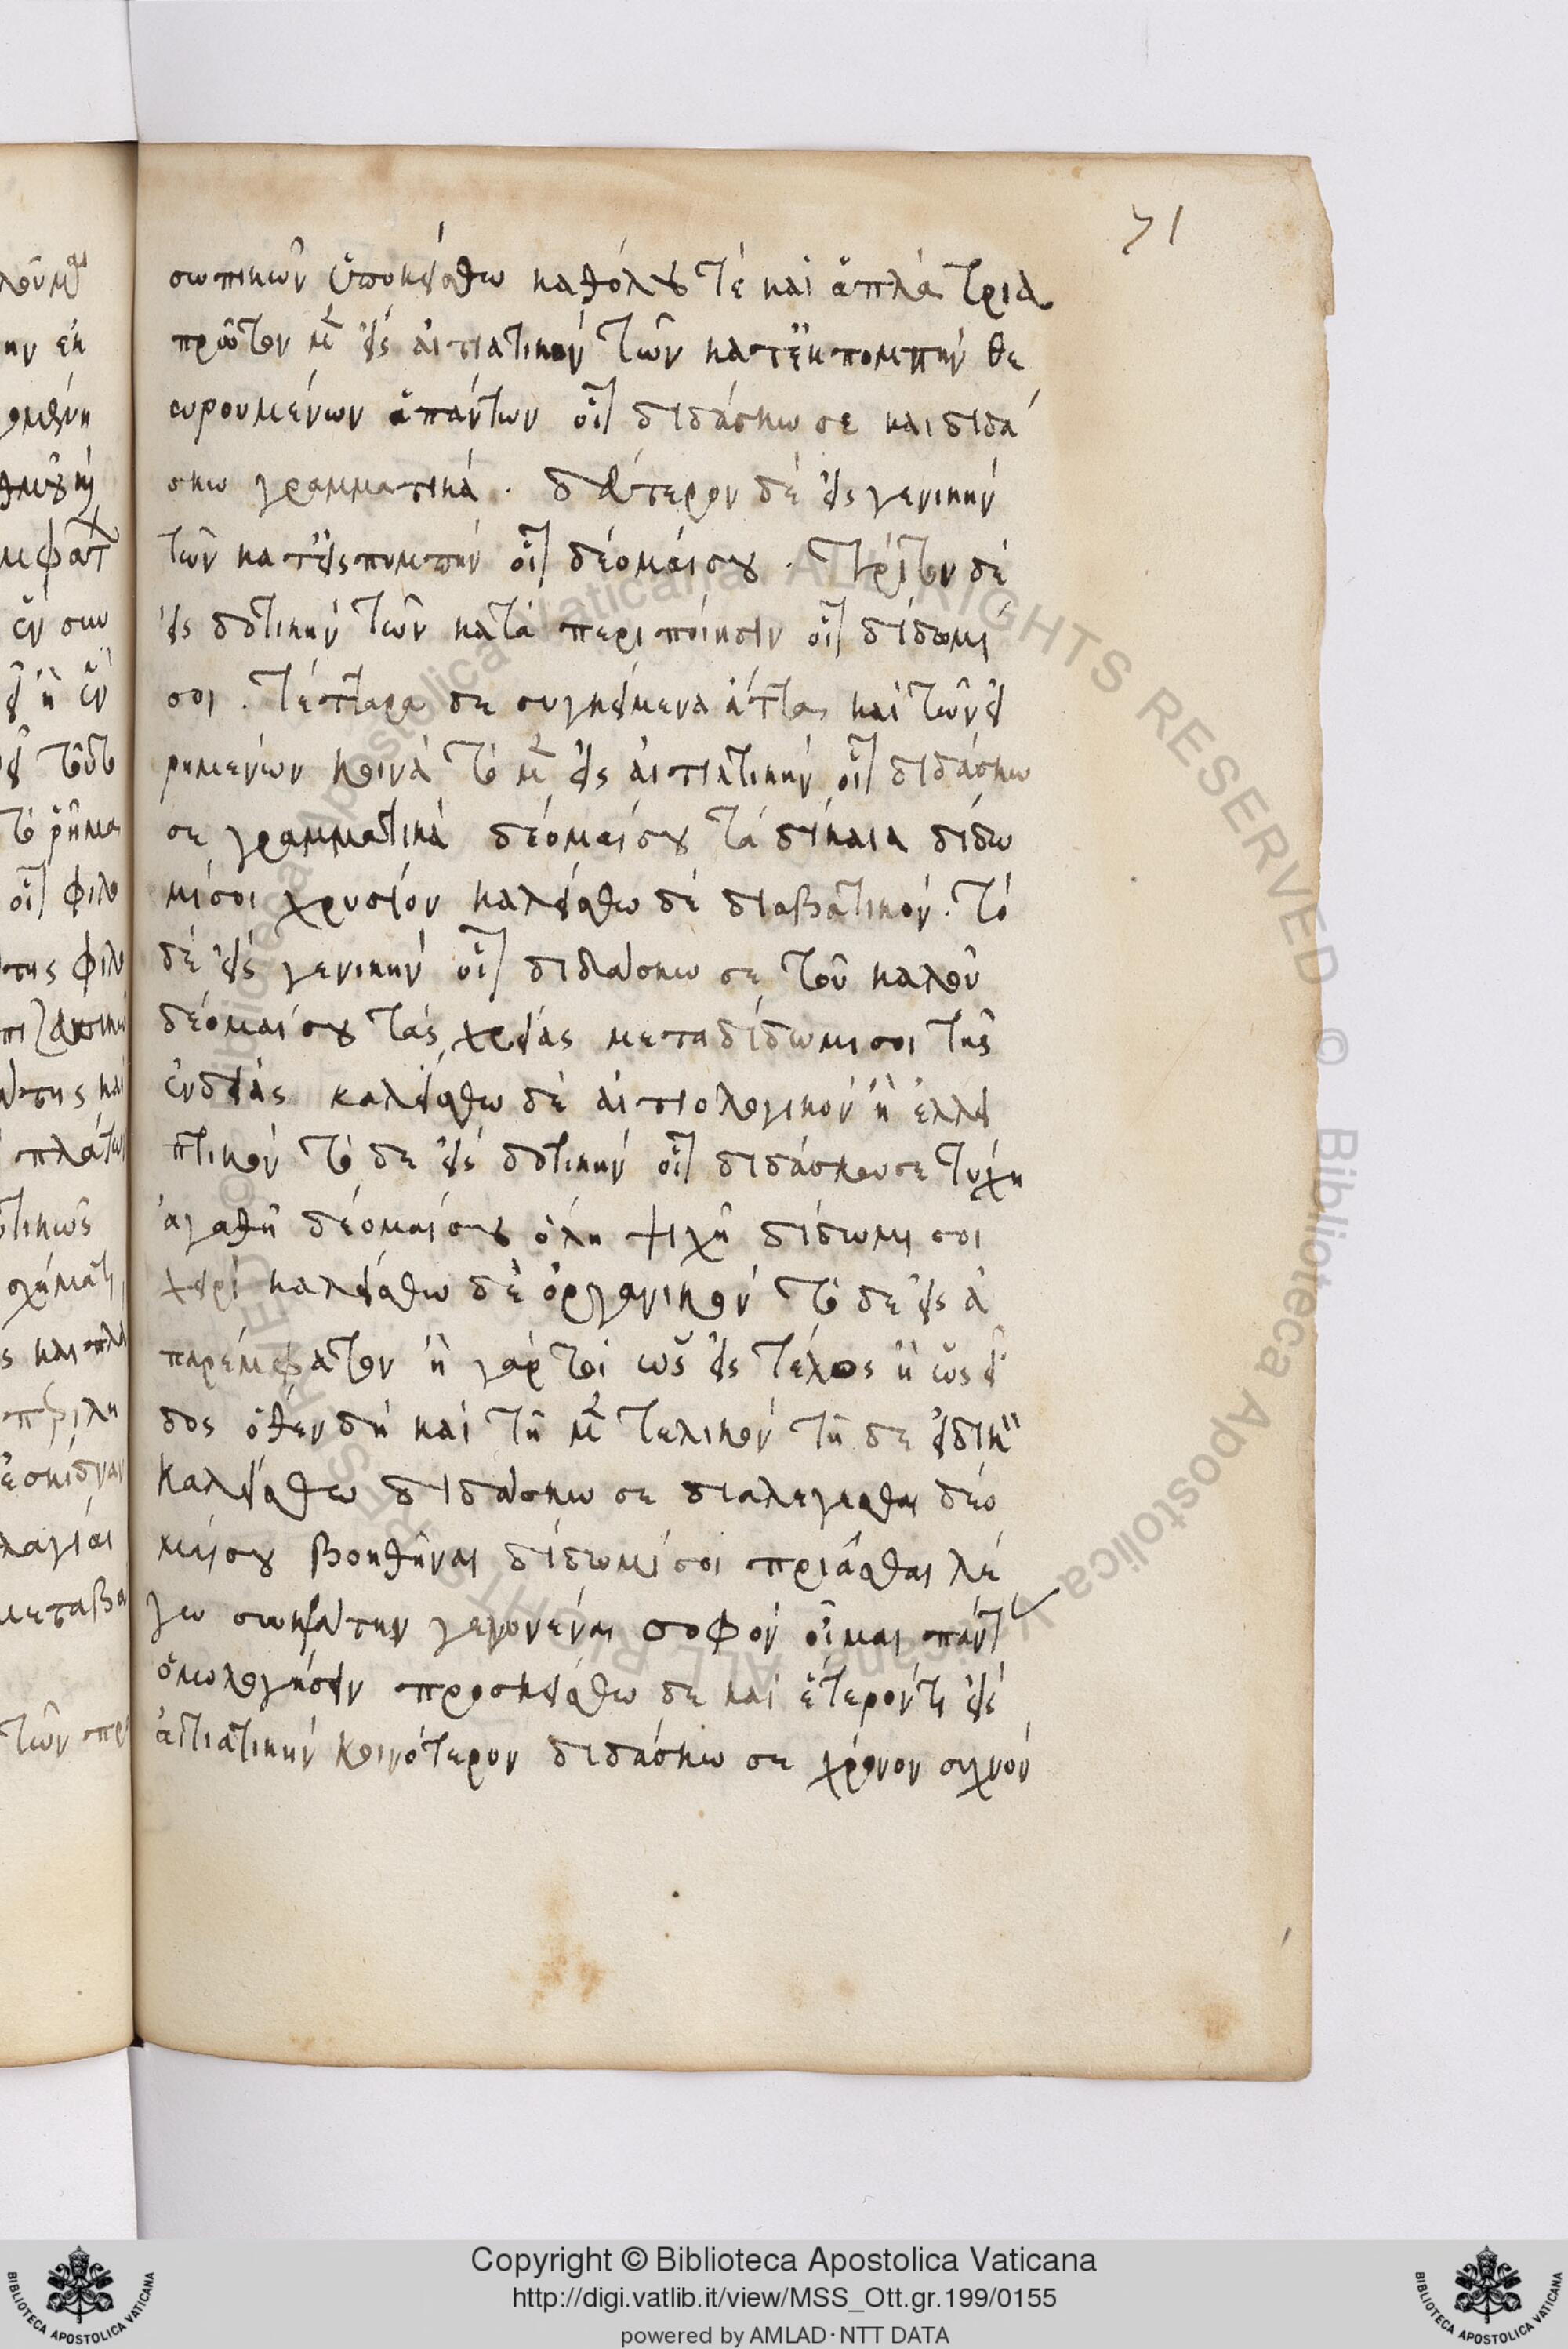 71
σωπικῶν ὑποκείσθω καθόλου τέ καὶ ἁπλᾶ τρία
πρῶτον μὲν εἰς αἰτιατικὴν τῶν κατ' ἐκπομπὴν θε
ωρουμένων ἁπάντων οἷον διδάσκω σε καὶ διδά
σκω γραμματικά. δεύτερον δὲ εἰς γενικὴν
τῶν κατ' εἰσπομπὴν οἷον δέομαί σου. τρίτον δὲ
εἰς δοτικὴν τῶν κατὰ περιποίησιν οἷον δίδωμι
σοι. τέτταρα δε συγκείμενα ἄττα καὶ τῶν εἰ
ρημένων κοινὰ τὸ μὲν εἰς αἰτιατικὴν οἷον διδάσκω
σε γραμματικὰ δέομαί σου τὰ δίκαια δίδω
μί σοι χρυσίον καλείσθω δὲ διαβατικόν. τὸ
δὲ εἰς γενικὴν οἷον διδάσκω σε τοῦ καλοῦ
δέομαί σου τὰς χρείας μεταδίδωμι σοι τῆς
ἐνδείας καλείσθω δὲ αἰτιολογικὸν ἢ ἐλλει
πτικὸν τὸ δε εἰς δοτικὴν οἷον διδάσκω σε τύχη
ἀγαθῆ δέομαί σου ὅλη ψιχῆ δίδωμι σοι
χειρὶ καλείσθω δὲ ὀργανικὸν τὸ δε εἰς ἀ
παρέμφατον ἢ γάρ τοι ὡς εἰς τέλος ἢ ὡς εἶ
δος ὅθεν δὴ καὶ τῆ μὲν τελικὸν τῆ δε εἰδικὸν
καλείσθω διδάσκω σε διαλέγεσθαι δέο
μαί σου βοηθῆναι δίδωμί σοι πριᾶσθαι λέ
γω σωκράτην γεγονέναι σοφὸν οἶμαι πάντας
ὁμολογήσειν προσκείσθω δε καὶ ἕτερόν τι εἰς
ἀιτιατικὴν κοινότερον διδάσκω σε χρόνον συχνόν
Copyright © Biblioteca Apostolica Vaticana
http://digi.vatlib.it/view/MSS_Ott.gr.199/0155
powered by AMLAD·NTT DATA